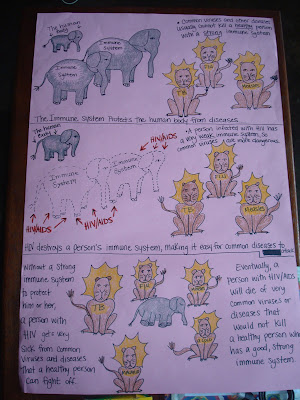 The human body
Immune System
Immune System
• Common viruses and other diseases
usually cannot kill a healthy person
with a strong immune system.
Flu
TB
Measles
The Immune System Protects the human body from diseases.
The human body
Immune System
Immune System
HIV/AIDS
HIV/AIDS
HIV/AIDS
HIV/AIDS
• A person infected with HIV has
a very weak immune system, so
common viruses are more dangerous.
Flu
TB
Measles
HIV destroys a person's immune system, making it easy for common diseases to
Without a strong
immune system
to protect
him or her,
a person with
HIV gets very
sick from common
viruses and diseases
that a healthy person
can fight off.
Flu
TB
Malaria
Eventually, a
person with HIV/AIDS
will die of very
common viruses or
diseases that
would not kill
a healthy person who
has a good, strong
immune system.